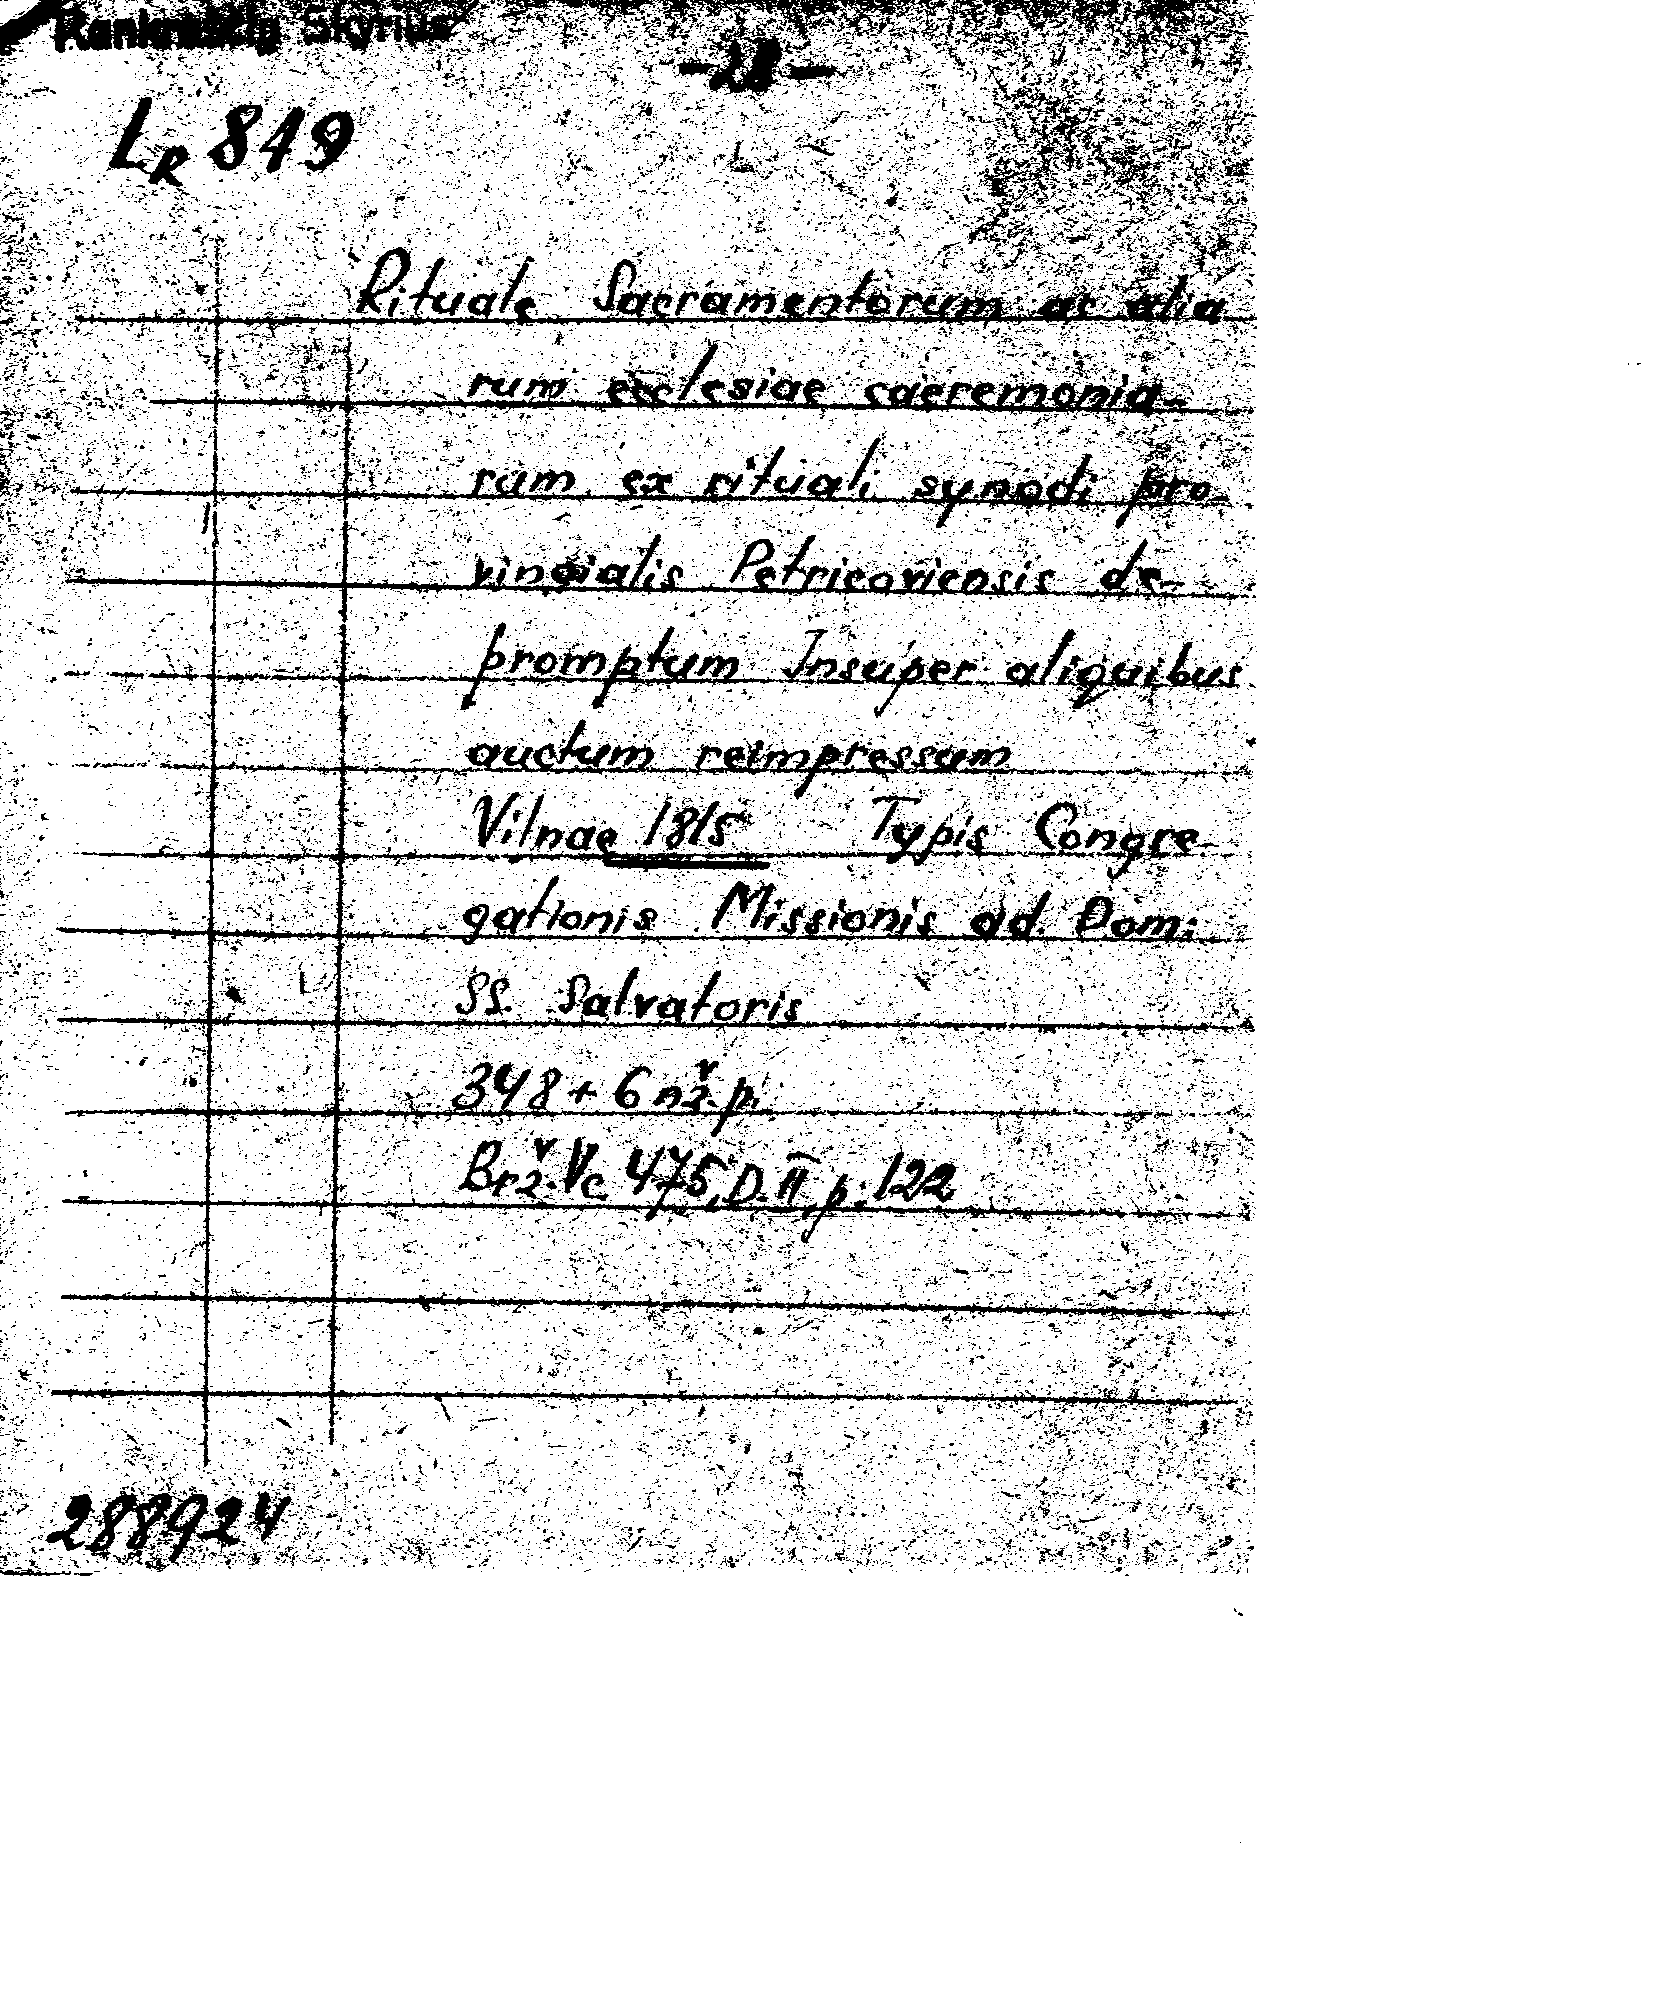 Rankraščių Skyrius
-28-
LR 849
Rituale Sacramentorum ac alia
rum ecclesiae caeremonia-
rum ex rituali synodi pro-
vincialis Petricoviensis de-
promptum Insuper aliquibus
auctum reimpressum
Vilnae 1815 Typis Congre
gationis Missionis ad. Dom:
SS. Salvatoris
348 + 6 nž. p.
Brž. Vc 475, D. II, p: 122
288924